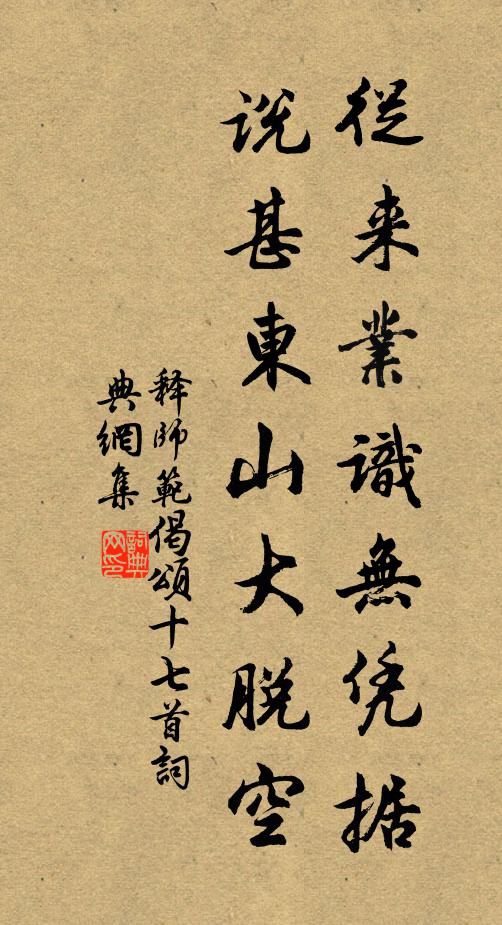 從来業識無凭据
説甚東山大脱空
释師範偈頌十七首詞
典網集
詞典
网印